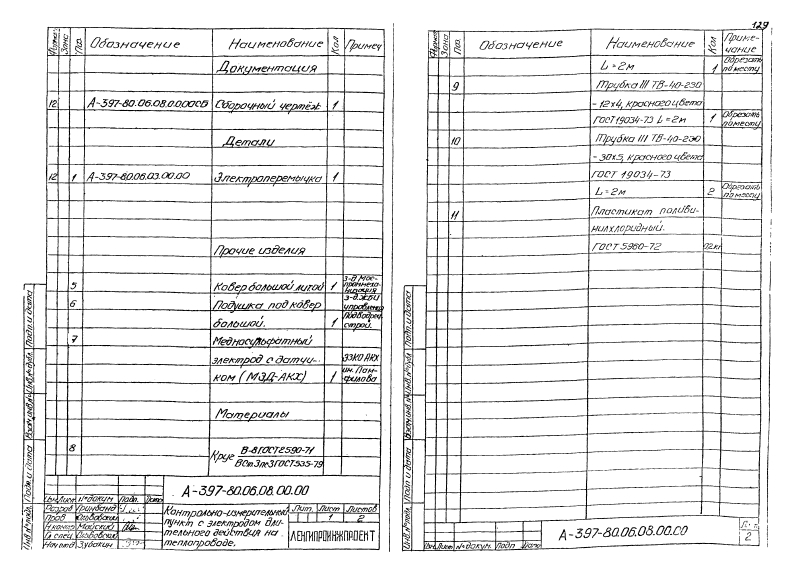 129
Формат Зона Поз. Обозначение Наименование Кол Примеч
Документация
12 А-397-80.06.08.00.00СБ Сборочный чертёж 1
Детали
12 1 А-397-80.06.03.00.00 Электроперемычка 1
Прочие изделия
5 Ковер большой литой 1 з-д Мос-
проммеха-
низация
6 Подушка под ковер з-д ЖБИ
управления
большой. 1 Подводреч-
строй.
7 Медносульфатный
электрод с датчи- ЭЗКО АКХ
ком (МЭД-АКХ) 1 им. Пам-
филова
Материалы
8 Круг В-8ГОСТ2590-71
ВСт3пс3ГОСТ535-79
А-397-80.06.08.00.00
Изм. Лист № докум. Подп. Дата
Разраб Гринбанд
Пров
Н.контр Майский
Гл спец
Нач отд Зубакин
Контрольно-измерительный
пункт с электродом дли-
тельного действия на
теплопроводе.
Лит. Лист Листов
1 2
ЛЕНГИПРОИНЖПРОЕКТ
Инв.№ подл. Подп. и дата Взам.инв.№ Инв.№ дубл. Подп. и дата
Формат Зона Поз. Обозначение Наименование Кол Приме-
чание
L=2м 1 Обрезать
по месту
9 Трубка III ТВ-40-230
-12х4, красного цвета
ГОСТ 19034-73 L=2м 1 Обрезать
по месту
10 Трубка III ТВ-40-230
-30х5, красного цвета
ГОСТ 19034-73
L=2м 2 Обрезать
по месту
11 Пластикат поливи-
нилхлоридный.
ГОСТ 5960-72 0.2кг
Инв.№ подл. Подп. и дата Взам.инв.№ Инв.№ дубл. Подп. и дата
Изм. Лист № докум. Подп Дата
А-397-80.06.08.00.СО
2